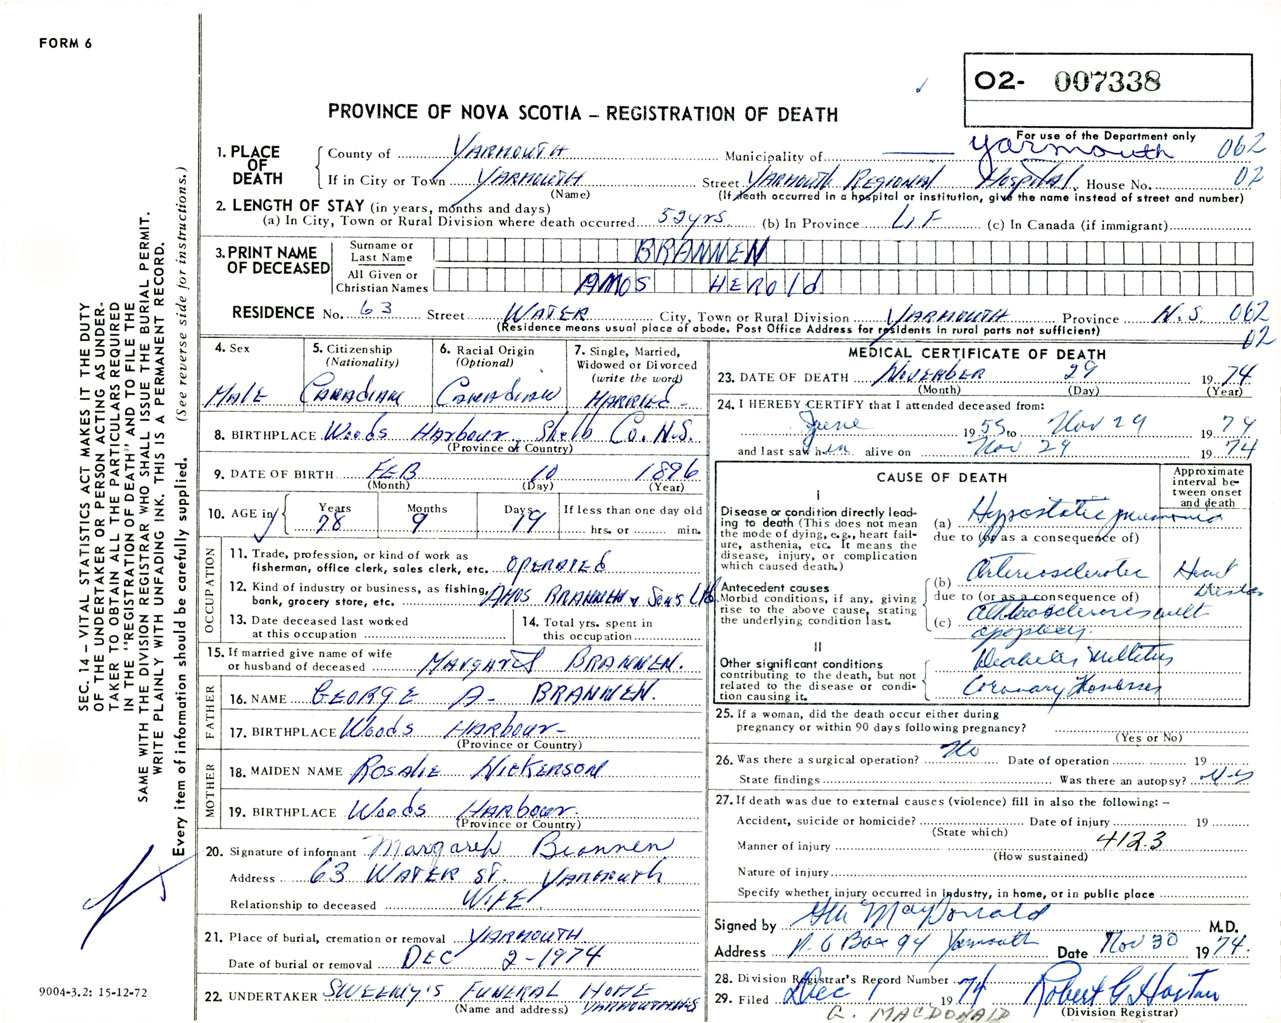 FORM 6
O2- 007338
PROVINCE OF NOVA SCOTIA – REGISTRATION OF DEATH
For use of the Department only
1. PLACE OF DEATH
County of YARMOUTH Municipality of —— Yarmouth 062
If in City or Town YARMOUTH Street YARMOUTH REGIONAL HOSPITAL House No. 02
(Name) (If death occurred in a hospital or institution, give the name instead of street and number)
2. LENGTH OF STAY (in years, months and days)
(a) In City, Town or Rural Division where death occurred 52yrs. (b) In Province LIF (c) In Canada (if immigrant)
3. PRINT NAME OF DECEASED
Surname or Last Name BRANNEN
All Given or Christian Names AMOS HEROLd
RESIDENCE No. 63 Street WATER City, Town or Rural Division YARMOUTH Province N.S. 062
(Residence means usual place of abode. Post Office Address for residents in rural parts not sufficient) 02
4. Sex
MALE
5. Citizenship (Nationality)
CANADIAN
6. Racial Origin (Optional)
CANADIAN
7. Single, Married, Widowed or Divorced (write the word)
MARRIED –
8. BIRTHPLACE Woods HARbour, Shelb Co. N.S.
(Province or Country)
9. DATE OF BIRTH FEB 10 1896
(Month) (Day) (Year)
10. AGE in Years 78 Months 9 Days 19 If less than one day old
hrs. or min.
OCCUPATION
11. Trade, profession, or kind of work as fisherman, office clerk, sales clerk, etc. OPERATED
12. Kind of industry or business, as fishing, bank, grocery store, etc. AMOS BRANNEN & SONS Ltd.
13. Date deceased last worked at this occupation
14. Total yrs. spent in this occupation
15. If married give name of wife or husband of deceased MARGARET BRANNEN.
FATHER
16. NAME GEORGE A- BRANNEN.
17. BIRTHPLACE Woods HARbour –
(Province or Country)
MOTHER
18. MAIDEN NAME ROSALIE NICKERSON
19. BIRTHPLACE Woods HARbour.
(Province or Country)
20. Signature of informant Margaret Brannen
Address 63 WATER ST. YARMOUTH
Relationship to deceased WIFE
21. Place of burial, cremation or removal YARMOUTH
Date of burial or removal DEC 2-1974
22. UNDERTAKER SWEENY'S FUNERAL HOME YARMOUTH N.S
(Name and address)
MEDICAL CERTIFICATE OF DEATH
23. DATE OF DEATH NOVEMBER 29 1974
(Month) (Day) (Year)
24. I HEREBY CERTIFY that I attended deceased from:
June 1955 to Nov 29 1974
and last saw him alive on Nov 29 1974
CAUSE OF DEATH
Approximate interval between onset and death
I
Disease or condition directly leading to death (This does not mean the mode of dying, e.g., heart failure, asthenia, etc. It means the disease, injury, or complication which caused death.)
(a) Hypostatic pneumonia
due to (or as a consequence of)
Antecedent causes
Morbid conditions, if any, giving rise to the above cause, stating the underlying condition last.
(b) Arteriosclerotic Heart Disease
due to (or as a consequence of)
(c) Atherosclerosis with
apoplexy.
II
Other significant conditions contributing to the death, but not related to the disease or condition causing it.
Diabetes Mellitus
Coronary Thombosis
25. If a woman, did the death occur either during pregnancy or within 90 days following pregnancy?
(Yes or No)
26. Was there a surgical operation? No Date of operation 19
State findings Was there an autopsy?
27. If death was due to external causes (violence) fill in also the following: –
Accident, suicide or homicide? Date of injury 19
(State which)
Manner of injury 412.3
(How sustained)
Nature of injury
Specify whether injury occurred in industry, in home, or in public place
Signed by GM MacDonald M.D.
Address P.O Box 94 Yarmouth Date Nov 30 1974.
28. Division Registrar's Record Number
29. Filed Dec 1 1974
(Division Registrar)
G. MACDONALD
SEC. 14 – VITAL STATISTICS ACT MAKES IT THE DUTY
OF THE UNDERTAKER OR PERSON ACTING AS UNDER-
TAKER TO OBTAIN ALL THE PARTICULARS REQUIRED
IN THE "REGISTRATION OF DEATH" AND TO FILE THE
SAME WITH THE DIVISION REGISTRAR WHO SHALL ISSUE THE BURIAL PERMIT.
WRITE PLAINLY WITH UNFADING INK. THIS IS A PERMANENT RECORD.
Every item of information should be carefully supplied. (See reverse side for instructions.)
9004-3.2: 15-12-72